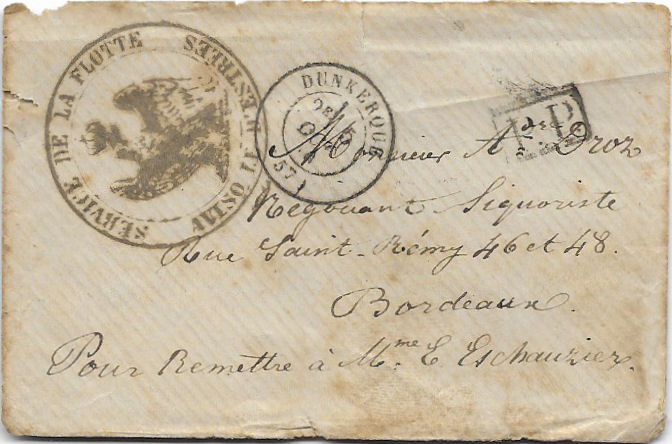 SERVICE DE LA FLOTTE
AVISO
DUNKERQUE
57
P.P.
Monsieur A. Droz
Négociant Liquoriste
Rue Saint-Rémy 46 et 48.
Bordeaux.
Pour Remettre à Mme E Eschauzier.